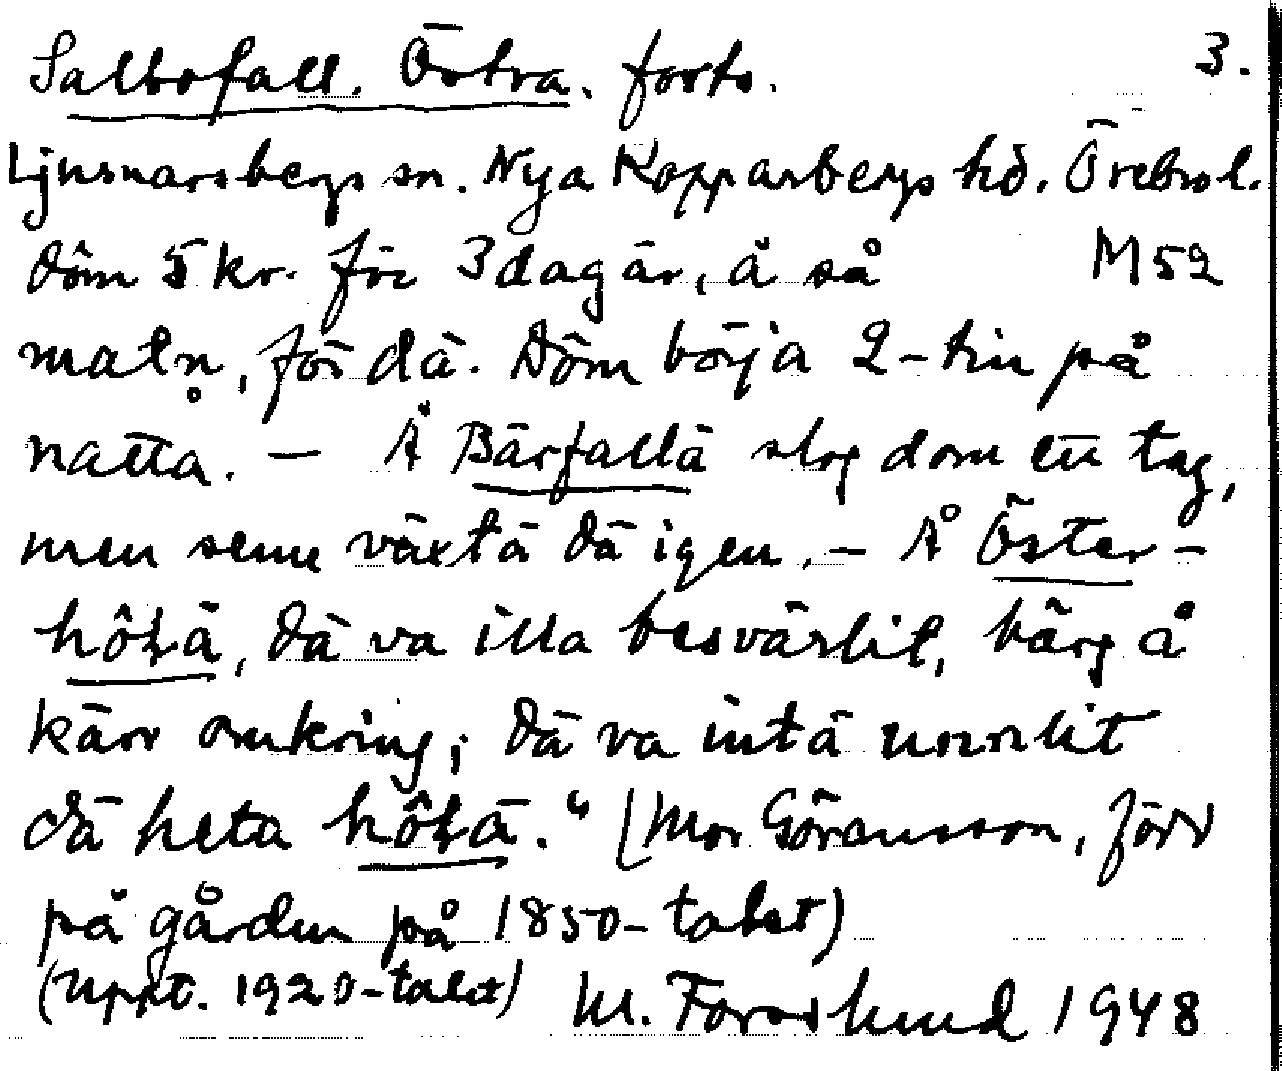 Saltofall. Östra. forts. 3.
Ljusnarsbergs sn. Nya Kopparbergs hd. Örebro l.
döm 5 kr. för 3 dagär, å så M 52
matn̥, för dä. Döm börja 2-tin på
natta. — Å Bärfallä slog dom en tag,
men senu växtä dä igen. — Å Öster-
hôɫä, dä va illa besvärlit, bärg å
kärr omkring; dä va intä
dä heta hôɫä." (Mor Göransson, förr
på gården på 1850-talet)
(Uppt. 1920-talet) M. Forsslund 1948